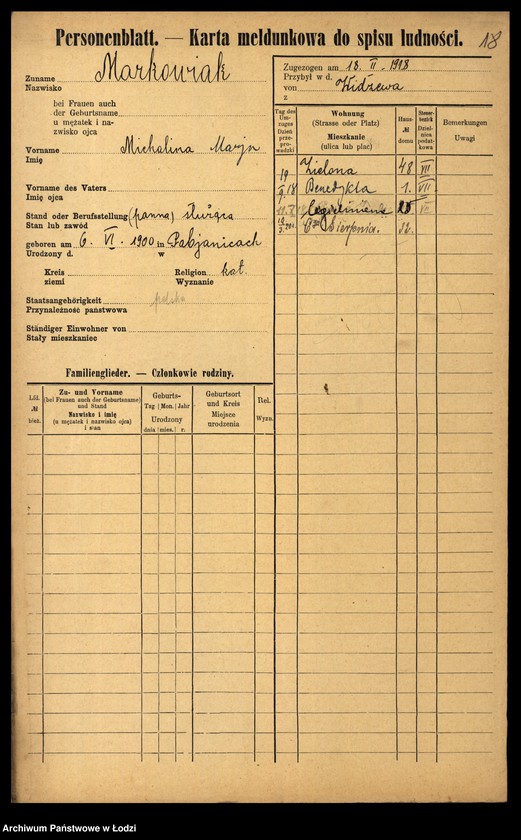 Personenblatt. — Karta meldunkowa do spisu ludności. 18
Zuname Markowiak
Nazwisko
bei Frauen auch
der Geburtsname
u mężatek i na-
zwisko ojca
Vorname Michalina Marja
Imię
Vorname des Vaters
Imię ojca
Stand oder Berufsstellung (panna) służąca
Stan lub zawód
geboren am 6. VI. 1900 in Pabjanicach
Urodzony d. w
Kreis Religion kat.
ziemi Wyznanie
Staatsangehörigkeit polska
Przynależność państwowa
Ständiger Einwohner von
Stały mieszkaniec
Familienglieder. — Członkowie rodziny.
Lfd. № bież.
Zu- und Vorname
(bei Frauen auch der Geburtsname)
und Stand
Nazwisko i imię
(u mężatek i nazwisko ojca)
i stan
Geburts-
Tag Mon. Jahr
Urodzony
dnia mies. r.
Geburtsort
und Kreis
Miejsce
urodzenia
Rel.
Wyzn.
Zugezogen am 18. II. 1918
Przybył w d.
von Widzewa
z
Tag des
Um-
zuges
Dzień
prze-
prowadzki
Wohnung
(Strasse oder Platz)
Mieszkanie
(ulica lub plac)
Haus-
№
domu
Steuer-
bezirk
Dzielnica
podat-
kowa
Bemerkungen
Uwagi
Zielona 48 VII
19/9.18 Benedykta 1. VII
Cegielniana
6go Sierpnia.
Archiwum Państwowe w Łodzi